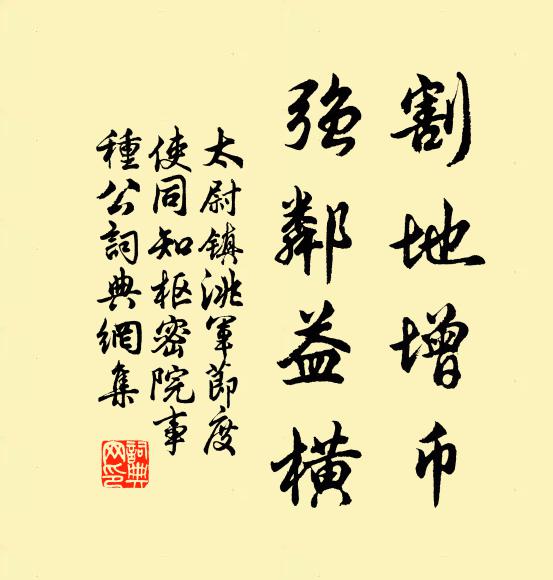 割地增币
强鄰益横
太尉镇洮軍節度
使同知枢密院事
種公詞典網集
詞典网印